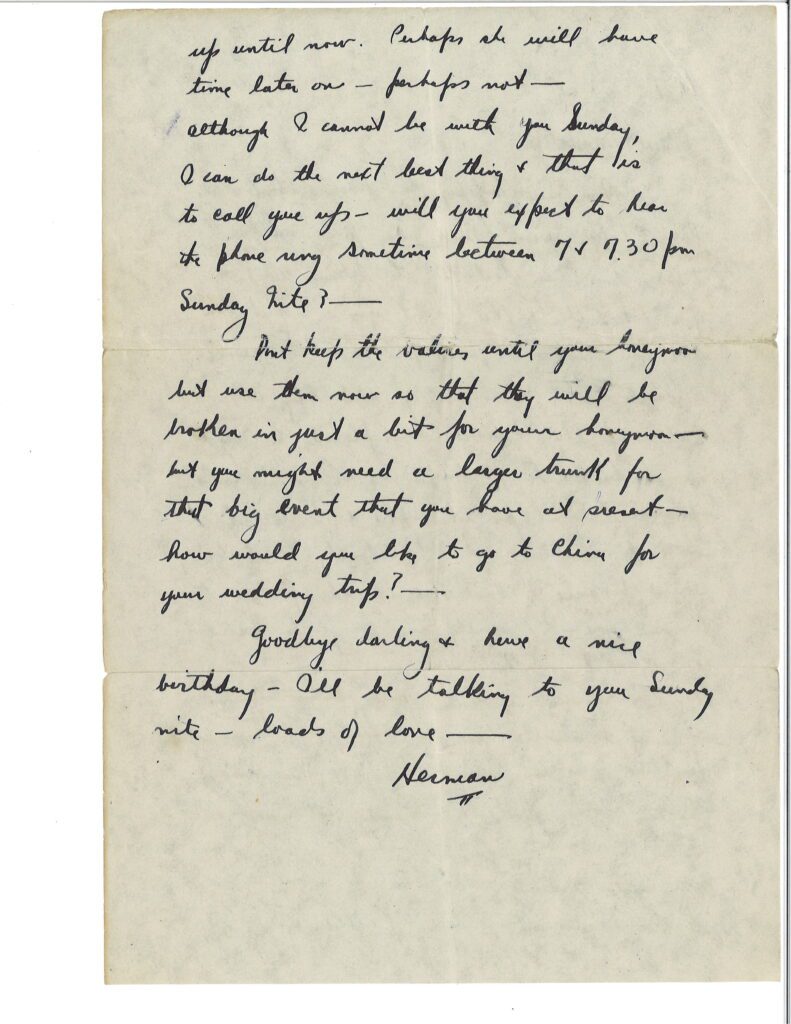 up until now. Perhaps she will have
time later on – perhaps not —
although I cannot be with you Sunday,
I can do the next best thing & that is
to call you up – will you expect to hear
the phone ring sometime between 7 & 7.30 pm
Sunday Nite? —
Don't keep the valises until your honeymoon
but use them now so that they will be
broken in just a bit for your honeymoon —
but you might need a larger trunk for
that big event that you have at present —
how would you like to go to China for
your wedding trip? —
Goodbye darling & have a nice
birthday – I'll be talking to you Sunday
nite – loads of love —
Herman